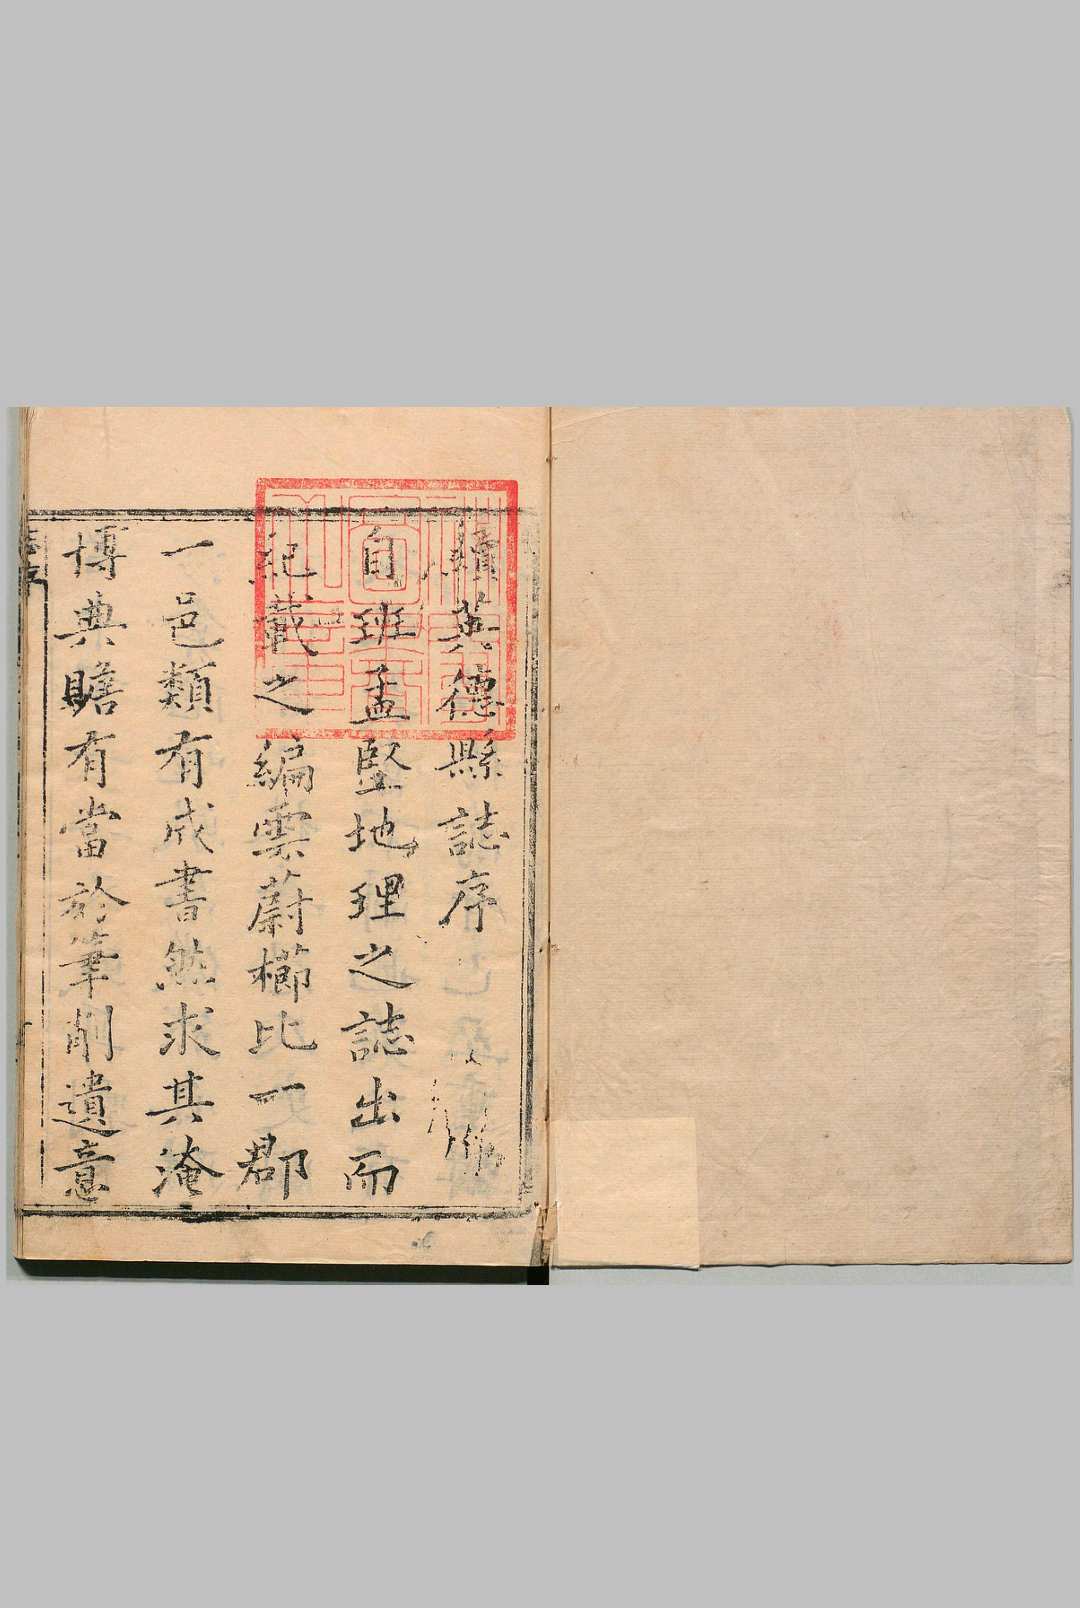 續英德縣誌序
自班孟堅地理之誌出而
紀載之編雲蔚櫛比一郡
一邑類有成書然求其淹
博典贍有當於筆削遺意